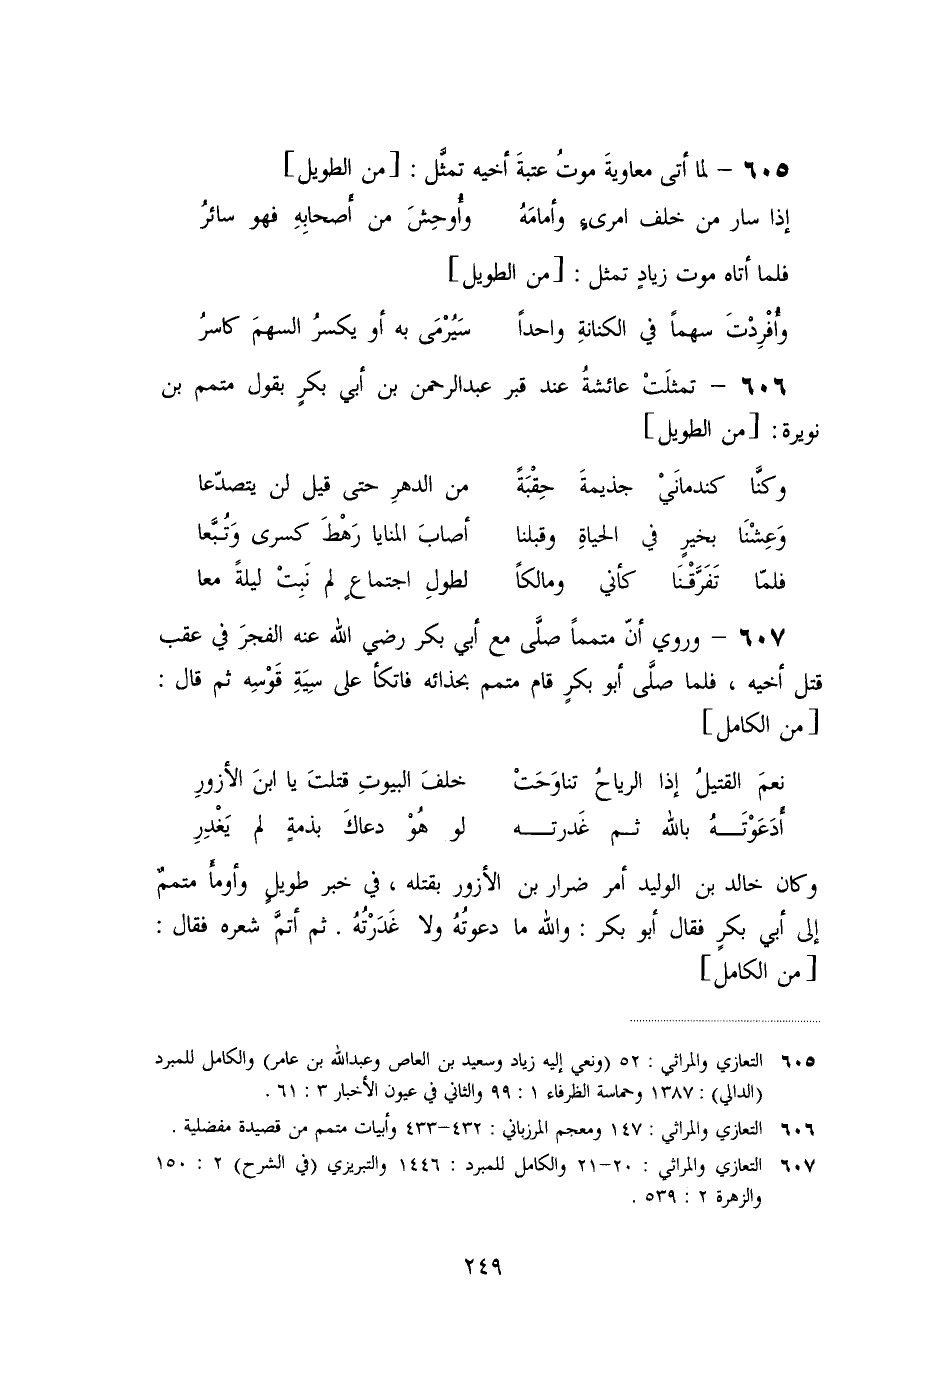 ٦٠٥ – لما أتى معاويةَ موتُ عتبةَ أخيه تمثَّل : [من الطويل]
إذا سار من خلف امرىءٍ وأمامَهُ وأُوحِشَ من أَصحابِهِ فهو سائرُ
فلما أتاه موت زيادٍ تمثل : [من الطويل]
وأُفْرِدْتَ سهماً في الكنانةِ واحداً سَيُرْمَى به أو يكسرُ السهمَ كاسرُ
٦٠٦ – تمثلَتْ عائشةُ عند قبر عبدالرحمن بن أبي بكرٍ بقول متمم بن
نويرة : [من الطويل]
وكنَّا كندمانَيْ جذيمةَ حِقْبَةً من الدهرِ حتى قيل لن يتصدّعا
وَعِشْنَا بخيرٍ في الحياةِ وقبلنا أصابَ المنايا رَهْطَ كسرى وَتُبَّعا
فلمّا تَفَرَّقْنَا كأني ومالكاً لطولِ اجتماعٍ لم نَبِتْ ليلةً معا
٦٠٧ – وروي أنّ متمماً صلَّى مع أبي بكر رضي الله عنه الفجرَ في عقب
قتل أخيه ، فلما صلَّى أبو بكرٍ قام متمم بحذائه فاتكأ على سِيَةِ قَوْسِه ثم قال :
[من الكامل]
نعمَ القتيلُ إذا الرياحُ تناوَحَتْ خلفَ البيوتِ قتلتَ يا ابنَ الأزورِ
أَدَعَوْتَــهُ بالله ثــم غَدرتــه لو هُوْ دعاكَ بذمةٍ لم يَغْدِرِ
وكان خالد بن الوليد أمر ضرار بن الأزور بقتله ، في خبر طويلٍ وأومأَ متممٌ
إلى أبي بكرٍ فقال أبو بكر : والله ما دعوتُهُ ولا غَدَرْتُهُ . ثم أتمَّ شعره فقال :
[من الكامل]
٦٠٥ التعازي والمراثي : ٥٢ (ونعي إليه زياد وسعيد بن العاص وعبدالله بن عامر) والكامل للمبرد
(الدالي) : ١٣٨٧ وحماسة الظرفاء ١ : ٩٩ والثاني في عيون الأخبار ٣ : ٦١ .
٦٠٦ التعازي والمراثي : ١٤٧ ومعجم المرزباني : ٤٣٢–٤٣٣ وأبيات متمم من قصيدة مفضلية .
٦٠٧ التعازي والمراثي : ٢٠–٢١ والكامل للمبرد : ١٤٤٦ والتبريزي (في الشرح) ٢ : ١٥٠
والزهرة ٢ : ٥٣٩ .
٢٤٩